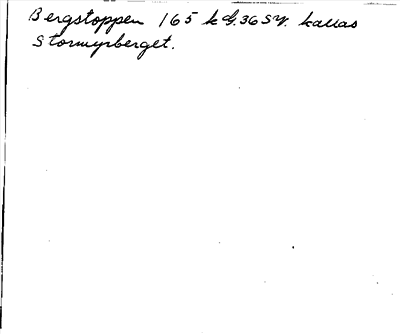 Bergstoppen 165 kf. 36 SV. kallas
Stormyrberget.